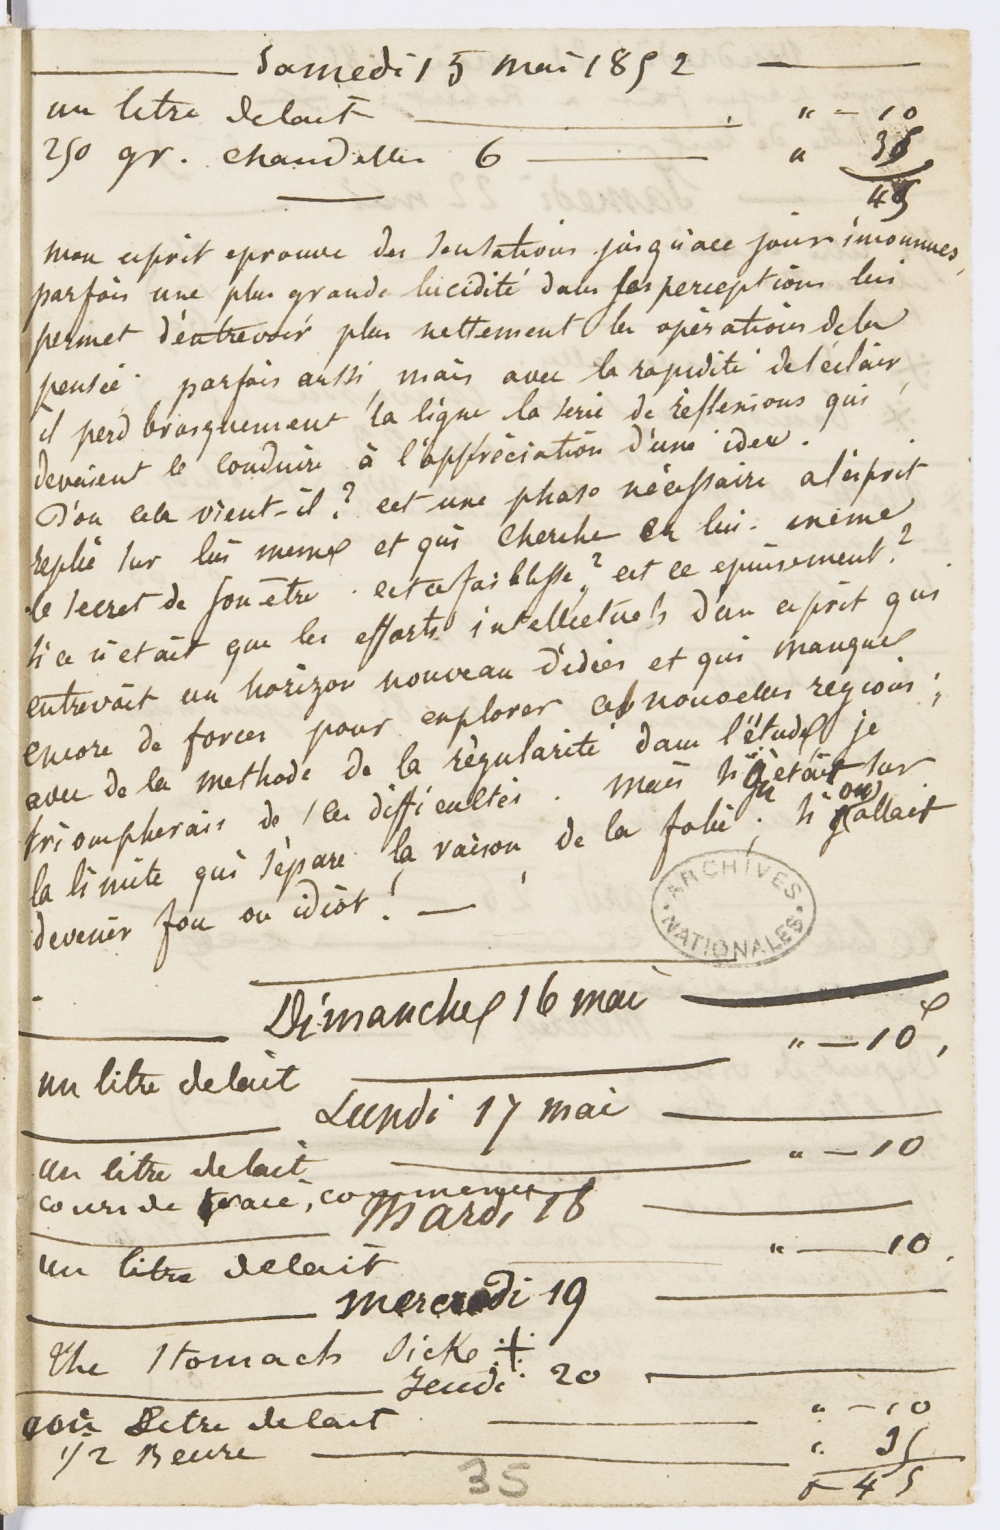 Samedi 15 mai 1852
un litre delait " - 10
250 gr. chandelles 6 " 35
45
mon esprit eprouve des sensations jusqu'ace jour inconnues,
parfois une plus grande lucidité dans ses perceptions lui
permet d'entrevoir plus nettement les opérations dela
pensée. parfois aussi, mais avec la rapidité del'éclair,
il perd brusquement la ligne la serie de réflexions qui
devaient le conduire à l'appréciation d'une idee.
D'ou cela vient-il? est-une phase nécessaire al'esprit
replié sur lui meme et qui cherche en lui-meme
le secret de son être. est ce faiblesse? est ce epuisement?
si ce n'était que les efforts intellectuels d'un esprit qui
entrevoit un horizon nouveau d'idées et qui manque
encore de forces pour explorer ces nouvelles regions;
avec de la methode de la régularité dans l'étude je
triompherais de les difficultés. mais si j'étais sur
la limite qui sépare la raison de la folie; si on allait
devenir fou ou idiot! —
ARCHIVES NATIONALES
Dimanche 16 mai
un litre delait " — 10
Lundi 17 mai
un litre delait " — 10
cours de commencé
Mardi 18
un litre delait " — 10.
mercredi 19
the Stomach Sick +
Jeudi 20
Litre delait " - 10
1/2 Beure " 35
45
35